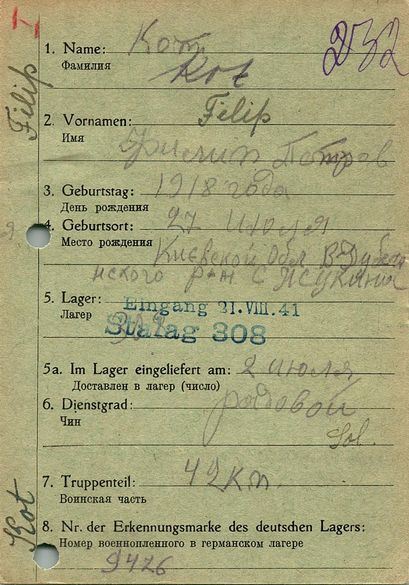 I
Filip
232
1. Name: Кот
Фамилия Kot
Filip
2. Vornamen:
Имя Филип Петров
3. Geburtstag: 1918 года
День рождения
4. Geburtsort: 27 июля
Место рождения Киевской Обл В-Дубеч
нского р-н С
5. Lager: Eingang 21. VIII. 41
Лагерь 308
Stalag 308
5a. Im Lager eingeliefert am: 2 июля
Доставлен в лагерь (число)
6. Dienstgrad: рядовой
Чин
Sol.
7. Truppenteil: 42 кп.
Воинская часть
Kot
8. Nr. der Erkennungsmarke des deutschen Lagers:
Номер военнопленного в германском лагере
9426